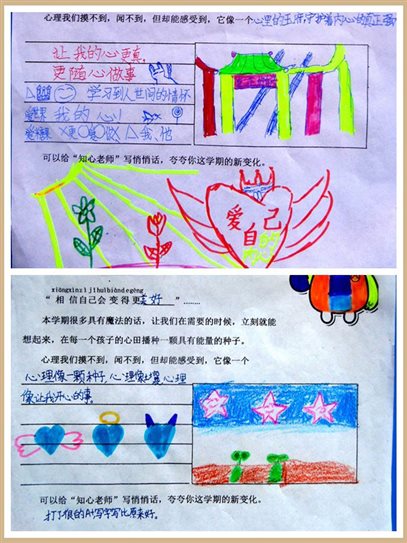 心理我们摸不到，闻不到，但却能感受到，它像一个心里的王府，守护着内心的真正强
让我的心更真，
更随心做事
学习到人世间的情怀
我的心
可以给“知心老师”写悄悄话，夸夸你这学期的新变化。
爱自己
xiāngxìnzì jǐhuìbiàndegèng
“相信自己会变得更美好”……
本学期很多具有魔法的话，让我们在需要的时候，立刻就能
想起来，在每一个孩子的心田播种一颗具有能量的种子。
心理我们摸不到，闻不到，但却能感受到，它像一个
心理像一颗种子，心理像 心理
像让我开心的事。
可以给“知心老师”写悄悄话，夸夸你这学期的新变化。
写字写比原来好。